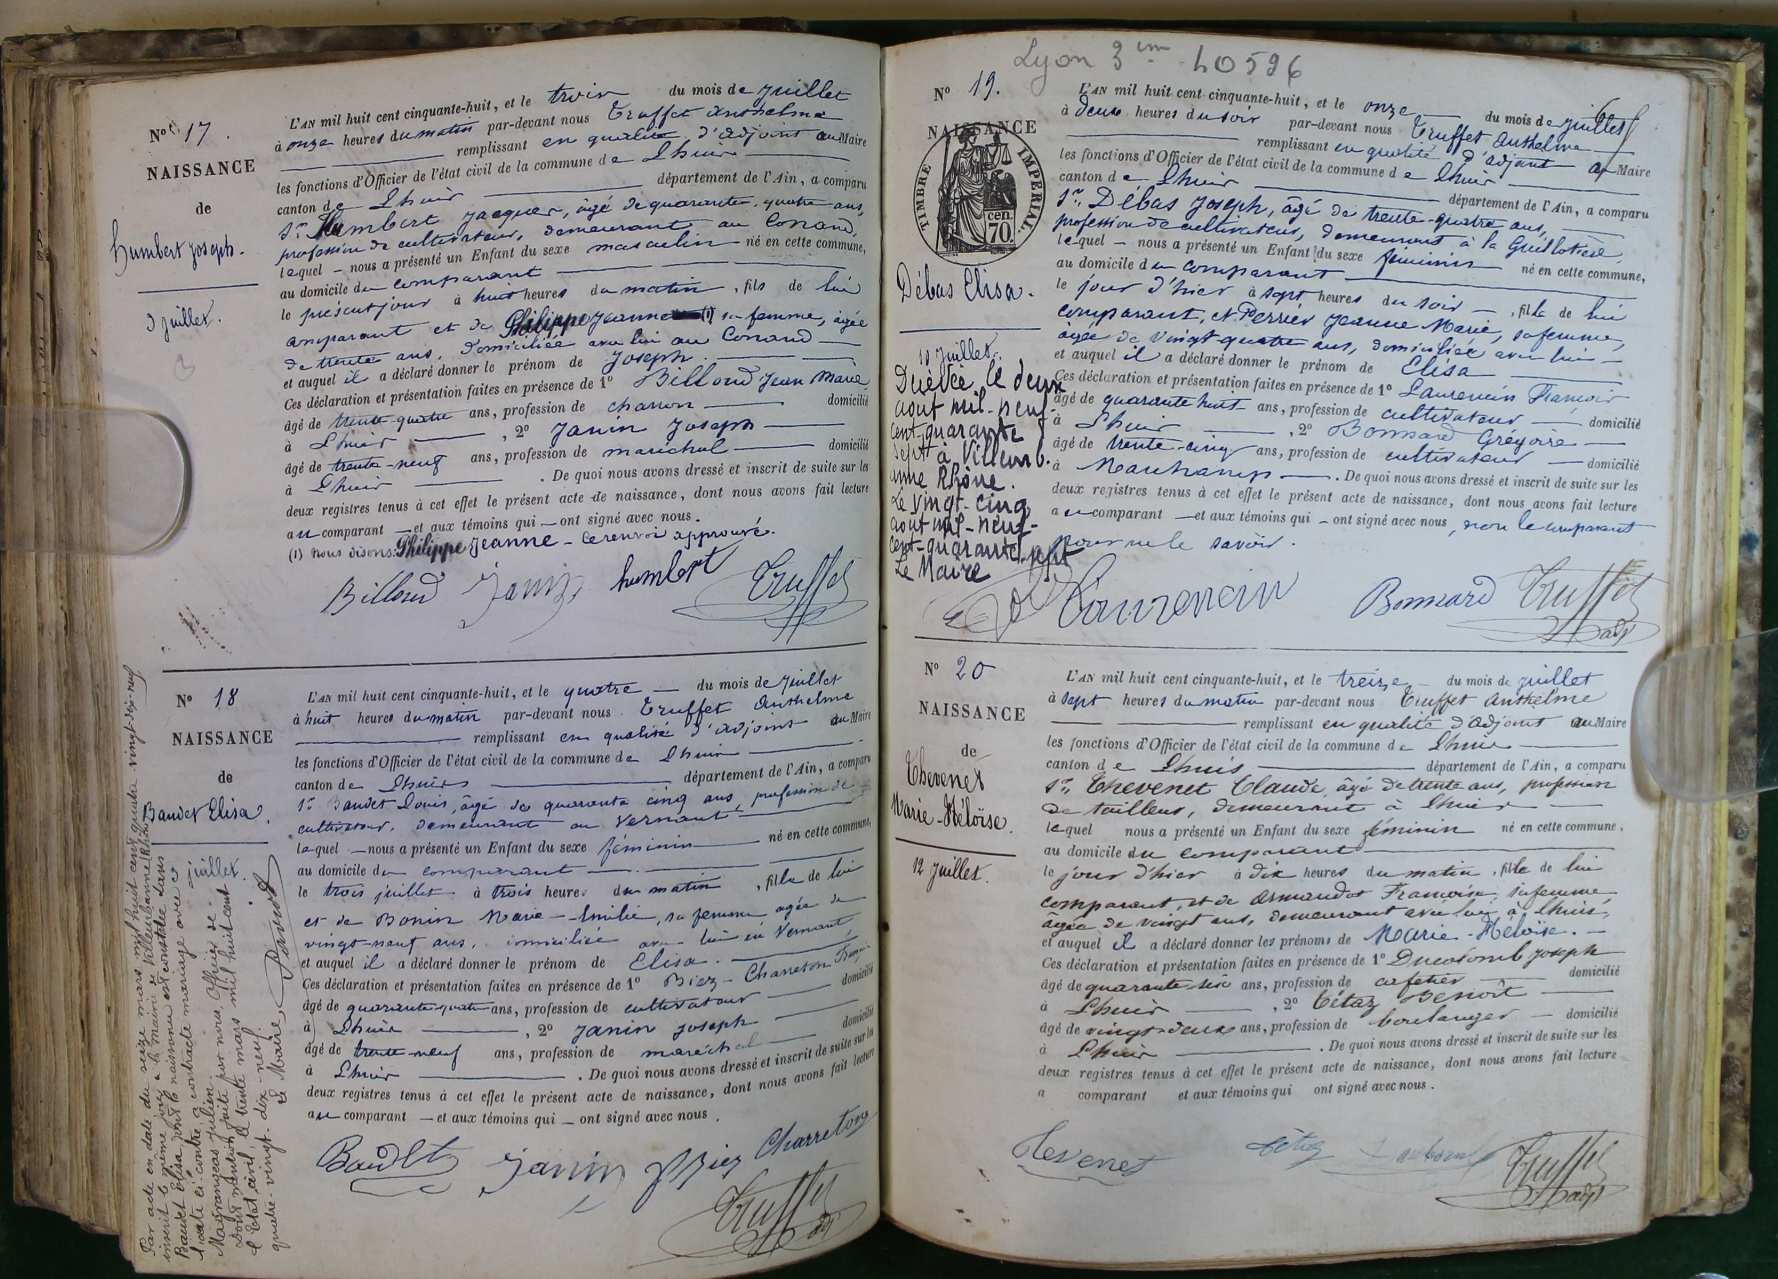 N° 17.
NAISSANCE
de
Humbert Joseph.
3 juillet.
L'AN mil huit cent cinquante-huit, et le trois du mois de juillet
à onze heures du matin par-devant nous Truffet Anthelme
remplissant en qualité d'adjoint au Maire
les fonctions d'Officier de l'état civil de la commune de Lhuis
canton de Lhuis département de l'Ain, a comparu
Sr. Humbert Jacques, âgé de quarante-quatre ans,
profession de cultivateur, demeurant au Conand,
lequel – nous a présenté un Enfant du sexe masculin né en cette commune,
au domicile du comparant
le présent jour à huit heures du matin, fils de lui
comparant et de Philippe Jeanne (1) sa femme, âgée
de trente ans, domiciliée avec lui au Conand
et auquel il a déclaré donner le prénom de Joseph.
Ces déclaration et présentation faites en présence de 1° Billoud Jean Marie
âgé de trente-quatre ans, profession de charron domicilié
à Lhuis, 2° Janin Joseph
âgé de trente-neuf ans, profession de maréchal domicilié
à Lhuis. De quoi nous avons dressé et inscrit de suite sur les
deux registres tenus à cet effet le présent acte de naissance, dont nous avons fait lecture
au comparant – et aux témoins qui – ont signé avec nous.
(1) nous disons: Philippe Jeanne – ce renvoi approuvé.
Billoud Janin humbert Truffet
N° 18
NAISSANCE
de
Baudet Elisa.
juillet.
L'AN mil huit cent cinquante-huit, et le quatre du mois de juillet
à huit heures du matin par-devant nous Truffet Anthelme
remplissant en qualité d'adjoint au Maire
les fonctions d'Officier de l'état civil de la commune de Lhuis
canton de Lhuis département de l'Ain, a comparu
Sr. Baudet Louis, âgé de quarante cinq ans, profession de
cultivateur, demeurant au Vernant
lequel – nous a présenté un Enfant du sexe féminin né en cette commune,
au domicile du comparant
le trois juillet à trois heures du matin, fille de lui
et de Bonin Marie-Emilie, sa femme agée de
vingt-neuf ans, domiciliée avec lui en Vernant,
et auquel il a déclaré donner le prénom de Elisa.
Ces déclaration et présentation faites en présence de 1° Biez-Charreton
âgé de quarante-quatre ans, profession de cultivateur domicilié
à Lhuis, 2° Janin Joseph
âgé de trente-neuf ans, profession de maréchal domicilié
à Lhuis. De quoi nous avons dressé et inscrit de suite sur les
deux registres tenus à cet effet le présent acte de naissance, dont nous avons fait lecture
au comparant – et aux témoins qui – ont signé avec nous.
Baudet Janin Biez Charreton
Truffet
adj
Par acte en date du seize mars mil huit cent quatre vingt-dix-neuf
inscrit le même jour à la mairie de Villeurbanne (Rhône)
Baudet Elisa dont la naissance est constatée dans
l'acte ci-contre a contracté mariage avec
Magrangeas Julien.
Dont mention faite par nous, Officier de
l'Etat civil, le trente mars mil huit cent
quatre-vingt-dix-neuf.
Le Maire,
Lyon 3em 40596
N° 19.
NAISSANCE
TIMBRE IMPERIAL.
70 cen.
Débas Elisa.
10 juillet.
Décédée le deux
aout mil-neuf-
cent-quarante
sept à Villeurb.
anne Rhône.
Le vingt-cinq
aout mil-neuf-
cent-quarante sept
Le Maire
L'AN mil huit cent cinquante-huit, et le onze du mois de juillet
à deux heures du soir par-devant nous Truffet Anthelme
remplissant en qualité d'adjoint au Maire
les fonctions d'Officier de l'état civil de la commune de Lhuis
canton de Lhuis département de l'Ain, a comparu
Sr. Débas Joseph, âgé de trente-quatre ans,
profession de cultivateur, demeurant à la Guillotière
lequel – nous a présenté un Enfant du sexe féminin né en cette commune,
au domicile du comparant
le jour d'hier à sept heures du soir, fille de lui
comparant, et Perrier Jeanne Marie, sa femme,
âgée de vingt-quatre ans, domiciliée avec lui
et auquel il a déclaré donner le prénom de Elisa
Ces déclaration et présentation faites en présence de 1° Laurencin François
âgé de quarante huit ans, profession de cultivateur domicilié
à Lhuis, 2° Bonnard Grégoire
âgé de trente-cinq ans, profession de cultivateur domicilié
à Marchamp. De quoi nous avons dressé et inscrit de suite sur les
deux registres tenus à cet effet le présent acte de naissance, dont nous avons fait lecture
au comparant – et aux témoins qui – ont signé avec nous, non le comparant
pour ne le savoir.
Laurencin Bonnard Truffet
adj
N° 20
NAISSANCE
de
Thevenet
Marie-Héloïse.
12 juillet.
L'AN mil huit cent cinquante-huit, et le treize du mois de juillet
à sept heures du matin par-devant nous Truffet Anthelme
remplissant en qualité d'adjoint au Maire
les fonctions d'Officier de l'état civil de la commune de Lhuis
canton de Lhuis département de l'Ain, a comparu
Sr. Thevenet Claude, âgé de trente ans, profession
de tailleur, demeurant à Lhuis
lequel nous a présenté un Enfant du sexe féminin né en cette commune,
au domicile du comparant
le jour d'hier à dix heures du matin, fille de lui
comparant, et de Armandot Françoise, sa femme
âgée de vingt ans, demeurant avec lui, à Lhuis,
et auquel il a déclaré donner les prénoms de Marie-Héloïse.
Ces déclaration et présentation faites en présence de 1° Ducolomb Joseph
âgé de quarante-six ans, profession de cafetier domicilié
à Lhuis, 2° Tétaz Benoît
âgé de vingt-deux ans, profession de boulanger domicilié
à Lhuis. De quoi nous avons dressé et inscrit de suite sur les
deux registres tenus à cet effet le présent acte de naissance, dont nous avons fait lecture
a comparant et aux témoins qui ont signé avec nous.
Tevenet Tétaz Truffet
adj